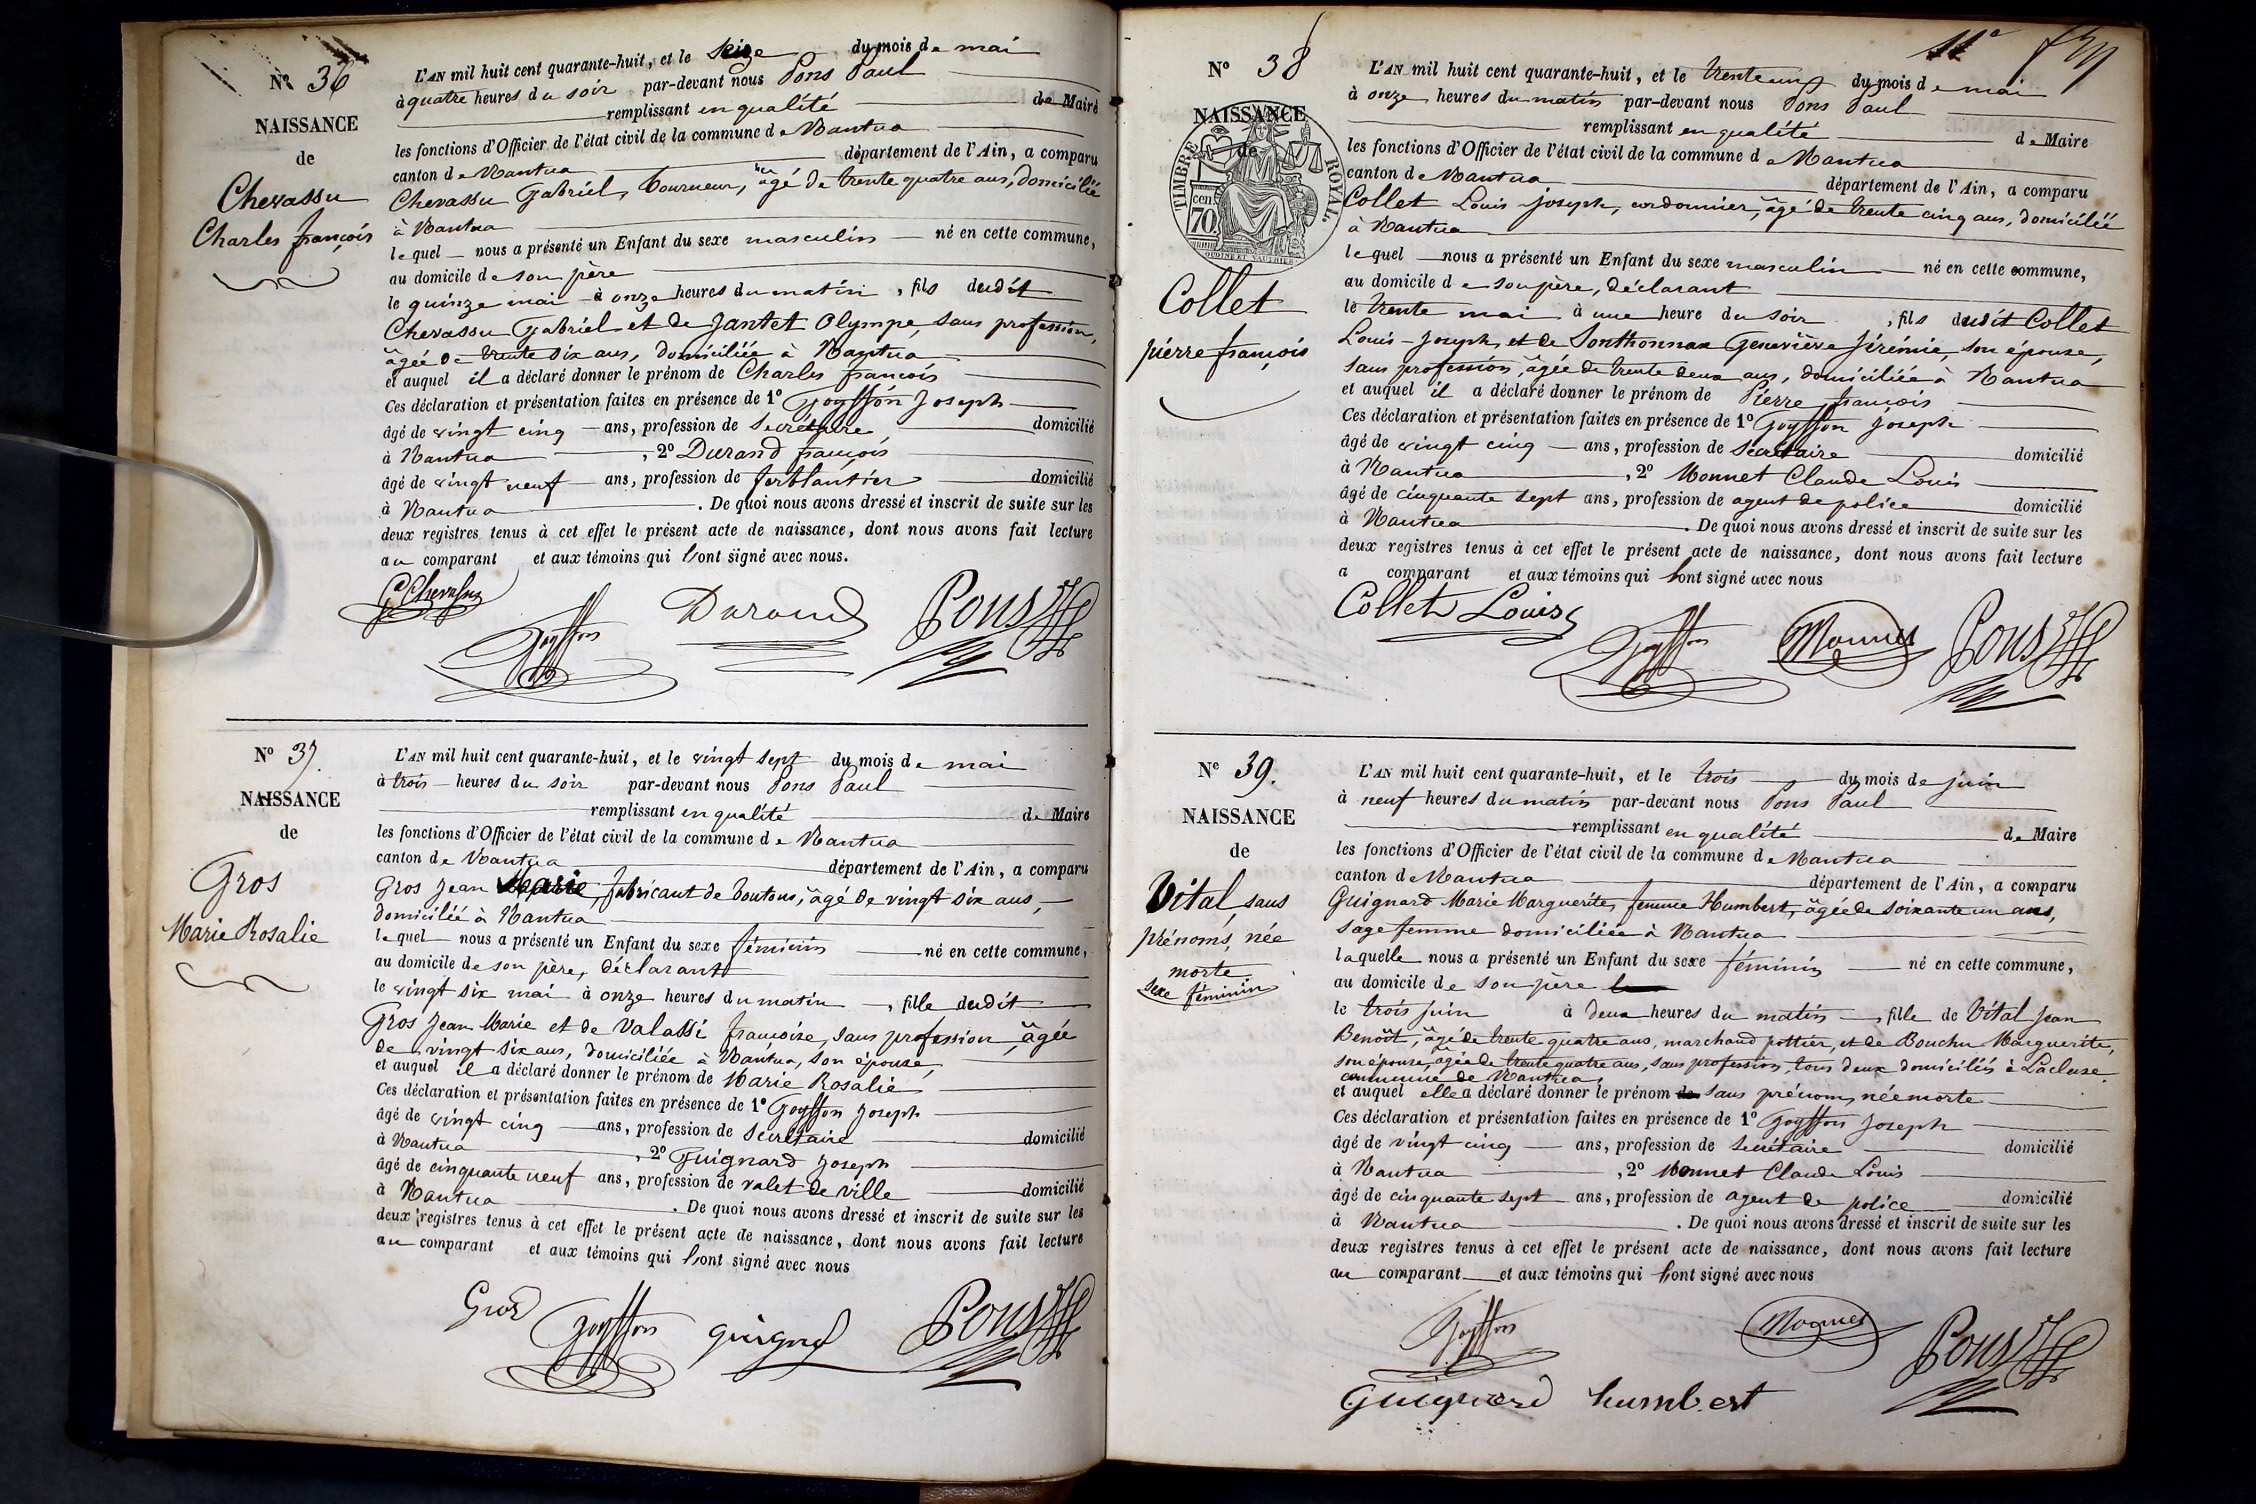 N° 36
NAISSANCE
de
Chevassu
Charles françois
L'AN mil huit cent quarante-huit, et le seize du mois de mai
à quatre heures du soir par-devant nous Pons Paul
remplissant en qualité de Maire
les fonctions d'Officier de l'état civil de la commune de Nantua
canton de Nantua département de l'Ain, a comparu
Chevassu Gabriel, tourneur, âgé de trente quatre ans, domicilié
à Nantua
lequel nous a présenté un Enfant du sexe masculin né en cette commune,
au domicile de son père
le quinze mai à onze heures du matin, fils dudit
Chevassu Gabriel et de Jantet Olympe, sans profession,
âgée de trente six ans, domiciliée à Nantua
et auquel il a déclaré donner le prénom de Charles françois
Ces déclaration et présentation faites en présence de 1° Goyffon Joseph
âgé de vingt cinq ans, profession de Secrétaire domicilié
à Nantua, 2° Durand françois
âgé de vingt neuf ans, profession de ferblantier domicilié
à Nantua. De quoi nous avons dressé et inscrit de suite sur les
deux registres tenus à cet effet le présent acte de naissance, dont nous avons fait lecture
au comparant et aux témoins qui sont signé avec nous.
G Chevassu
Goyffon Durand Pons
N° 37.
NAISSANCE
de
Gros
Marie Rosalie
L'AN mil huit cent quarante-huit, et le vingt sept du mois de mai
à trois heures du soir par-devant nous Pons Paul
remplissant en qualité de Maire
les fonctions d'Officier de l'état civil de la commune de Nantua
canton de Nantua département de l'Ain, a comparu
Gros Jean Marie, fabricant de boutons, âgé de vingt six ans,
domicilié à Nantua
lequel nous a présenté un Enfant du sexe féminin né en cette commune,
au domicile de son père, déclarant
le vingt six mai à onze heures du matin, fille dudit
Gros Jean Marie et de Valassi françoise, sans profession, âgée
de vingt six ans, domiciliée à Nantua, son épouse,
et auquel il a déclaré donner le prénom de Marie Rosalie
Ces déclaration et présentation faites en présence de 1° Goyffon Joseph
âgé de vingt cinq ans, profession de Secrétaire domicilié
à Nantua, 2° Guignard Joseph
âgé de cinquante neuf ans, profession de valet de ville domicilié
à Nantua. De quoi nous avons dressé et inscrit de suite sur les
deux registres tenus à cet effet le présent acte de naissance, dont nous avons fait lecture
au comparant et aux témoins qui sont signé avec nous
Gros Goyffon guignard Pons
11e
N° 38
NAISSANCE
de
TIMBRE ROYAL
70 cen.
Collet
pierre françois
L'AN mil huit cent quarante-huit, et le trente un du mois de mai
à onze heures du matin par-devant nous Pons Paul
remplissant en qualité de Maire
les fonctions d'Officier de l'état civil de la commune de Nantua
canton de Nantua département de l'Ain, a comparu
Collet Louis Joseph, cordonnier, âgé de trente cinq ans, domicilié
à Nantua
lequel nous a présenté un Enfant du sexe masculin né en cette commune,
au domicile de son père, déclarant
le trente mai à une heure du soir, fils dudit Collet
Louis-Joseph, et de Sonthonnax Geneviève Jérémie, son épouse,
sans profession, âgée de trente deux ans, domiciliée à Nantua
et auquel il a déclaré donner le prénom de Pierre françois
Ces déclaration et présentation faites en présence de 1° Goyffon Joseph
âgé de vingt cinq ans, profession de Secrétaire domicilié
à Nantua, 2° Monnet Claude Louis
âgé de cinquante sept ans, profession de agent de police domicilié
à Nantua. De quoi nous avons dressé et inscrit de suite sur les
deux registres tenus à cet effet le présent acte de naissance, dont nous avons fait lecture
a comparant et aux témoins qui sont signé avec nous
Collet Louis
Goyffon Monnet Pons
N° 39.
NAISSANCE
de
Vital, sans
prénoms, née
morte
sexe féminin
L'AN mil huit cent quarante-huit, et le trois du mois de juin
à neuf heures du matin par-devant nous Pons Paul
remplissant en qualité de Maire
les fonctions d'Officier de l'état civil de la commune de Nantua
canton de Nantua département de l'Ain, a comparu
Guignard Marie Marguerite, femme Humbert, âgée de soixante un ans,
sage femme domiciliée à Nantua
laquelle nous a présenté un Enfant du sexe féminin né en cette commune,
au domicile de son père
le trois juin à deux heures du matin, fille de Vital Jean
Benoît, âgé de trente-quatre ans, marchand pottier, et de Bouchu Marguerite,
son épouse, âgée de trente quatre ans, sans profession, tous deux domiciliés à Lacluse,
commune de Nantua,
et auquel elle a déclaré donner le prénom de sans prénom, née morte
Ces déclaration et présentation faites en présence de 1° Goyffon Joseph
âgé de vingt cinq ans, profession de Secrétaire domicilié
à Nantua, 2° Monnet Claude Louis
âgé de cinquante sept ans, profession de agent de police domicilié
à Nantua. De quoi nous avons dressé et inscrit de suite sur les
deux registres tenus à cet effet le présent acte de naissance, dont nous avons fait lecture
au comparant et aux témoins qui sont signé avec nous
Goyffon Monnet Pons
Guignard humbert